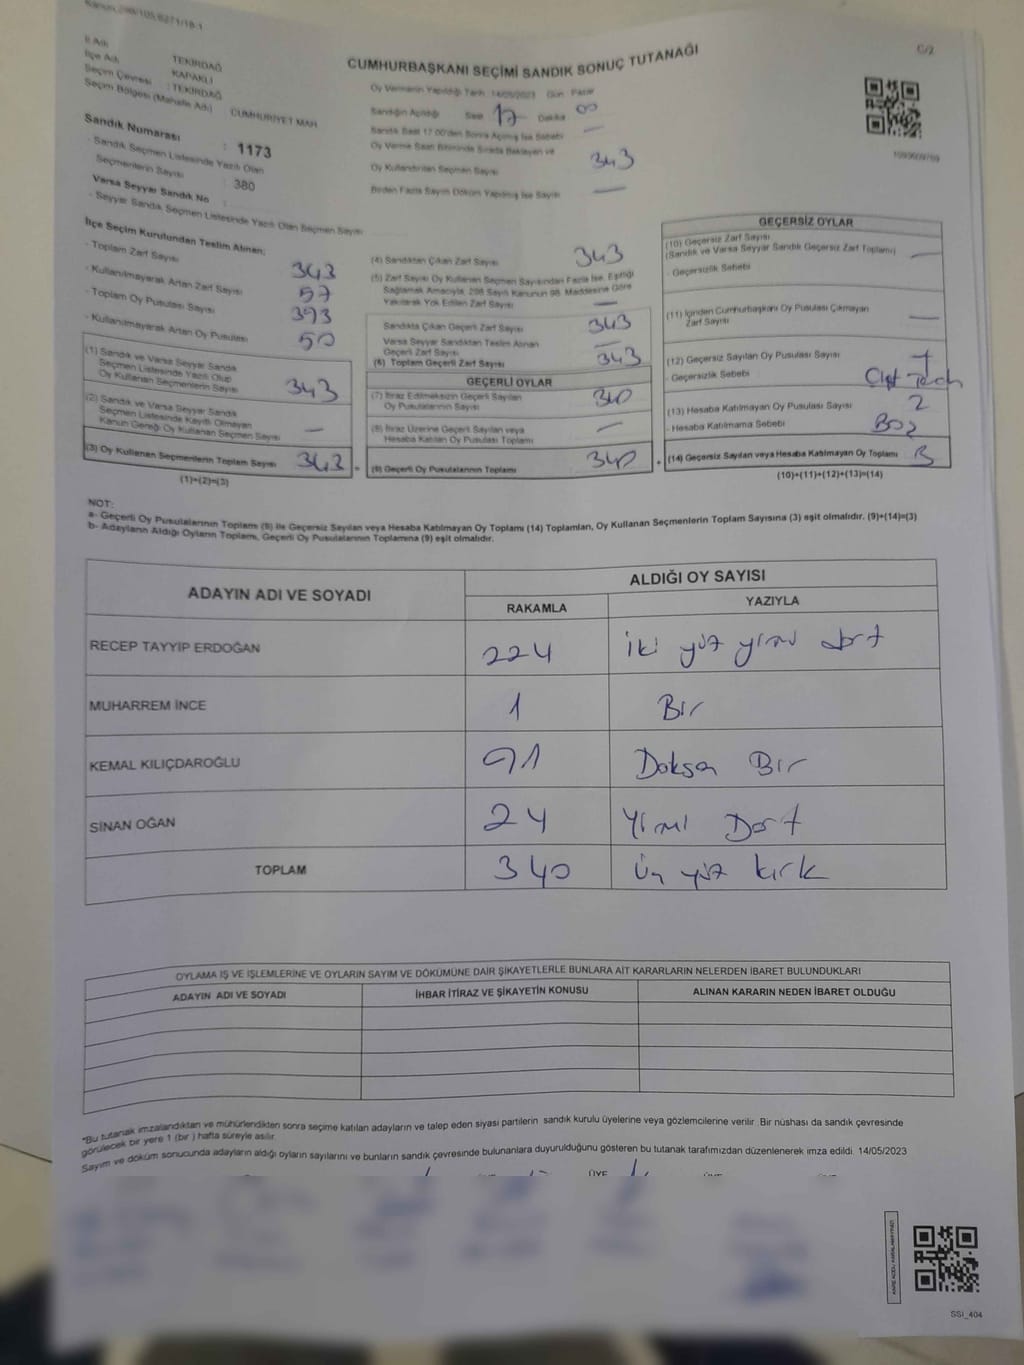 Kanun:298/105,6271/18-1
C/2
CUMHURBAŞKANI SEÇİMİ SANDIK SONUÇ TUTANAĞI
İl Adı : TEKİRDAĞ
İlçe Adı : KAPAKLI
Seçim Çevresi : TEKİRDAĞ
Seçim Bölgesi (Mahalle Adı) CUMHURİYET MAH
Sandık Numarası : 1173
- Sandık Seçmen Listesinde Yazılı Olan
Seçmenlerin Sayısı : 380
Varsa Seyyar Sandık No :
- Seyyar Sandık Seçmen Listesinde Yazılı Olan Seçmen Sayısı
Oy Vermenin Yapıldığı Tarih 14/05/2023 Gün Pazar
Sandığın Açıldığı Saat 17 Dakika 00
Sandık Saat 17.00'den Sonra Açılmış İse Sebebi —
Oy Verme Saati Bitiminde Sırada Bekleyen ve
Oy Kullandırılan Seçmen Sayısı 343
Birden Fazla Sayım Döküm Yapılmış İse Sayısı —
İlçe Seçim Kurulundan Teslim Alınan;
- Toplam Zarf Sayısı 343
- Kullanılmayarak Artan Zarf Sayısı 57
- Toplam Oy Pusulası Sayısı 393
- Kullanılmayarak Artan Oy Pusulası 50
(1) Sandık ve Varsa Seyyar Sandık
Seçmen Listesinde Yazılı Olup
Oy Kullanan Seçmenlerin Sayısı 343
(2) Sandık ve Varsa Seyyar Sandık
Seçmen Listesinde Kayıtlı Olmayan
Kanun Gereği Oy Kullanan Seçmen Sayısı —
(3) Oy Kullanan Seçmenlerin Toplam Sayısı 343
(1)+(2)=(3)
(4) Sandıktan Çıkan Zarf Sayısı 343
(5) Zarf Sayısı Oy Kullanan Seçmen Sayısından Fazla İse, Eşitliği
Sağlamak Amacıyla, 298 Sayılı Kanunun 98. Maddesine Göre
Yakılarak Yok Edilen Zarf Sayısı —
Sandıkta Çıkan Geçerli Zarf Sayısı 343
Varsa Seyyar Sandıktan Teslim Alınan
Geçerli Zarf Sayısı —
(6) Toplam Geçerli Zarf Sayısı 343
GEÇERLİ OYLAR
(7) İtiraz Edilmeksizin Geçerli Sayılan
Oy Pusulalarının Sayısı 340
(8) İtiraz Üzerine Geçerli Sayılan veya
Hesaba Katılan Oy Pusulası Toplamı —
(9) Geçerli Oy Pusulalarının Toplamı 340
GEÇERSİZ OYLAR
(10) Geçersiz Zarf Sayısı
(Sandık ve Varsa Seyyar Sandık Geçersiz Zarf Toplamı) —
- Geçersizlik Sebebi
(11) İçinden Cumhurbaşkanı Oy Pusulası Çıkmayan
Zarf Sayısı —
(12) Geçersiz Sayılan Oy Pusulası Sayısı 1
- Geçersizlik Sebebi
(13) Hesaba Katılmayan Oy Pusulası Sayısı 2
- Hesaba Katılmama Sebebi Boş
(14) Geçersiz Sayılan veya Hesaba Katılmayan Oy Toplamı 3
(10)+(11)+(12)+(13)=(14)
NOT:
a- Geçerli Oy Pusulalarının Toplamı (9) ile Geçersiz Sayılan veya Hesaba Katılmayan Oy Toplamı (14) Toplamları, Oy Kullanan Seçmenlerin Toplam Sayısına (3) eşit olmalıdır. (9)+(14)=(3)
b- Adayların Aldığı Oyların Toplamı, Geçerli Oy Pusulalarının Toplamına (9) eşit olmalıdır.
ADAYIN ADI VE SOYADI
ALDIĞI OY SAYISI
RAKAMLA YAZIYLA
RECEP TAYYİP ERDOĞAN 224 iki yüz yirmi dört
MUHARREM İNCE 1 Bir
KEMAL KILIÇDAROĞLU 91 Doksan Bir
SİNAN OĞAN 24 Yirmi Dört
TOPLAM 340 üç yüz kırk
OYLAMA İŞ VE İŞLEMLERİNE VE OYLARIN SAYIM VE DÖKÜMÜNE DAİR ŞİKAYETLERLE BUNLARA AİT KARARLARIN NELERDEN İBARET BULUNDUKLARI
ADAYIN ADI VE SOYADI İHBAR İTİRAZ VE ŞİKAYETİN KONUSU ALINAN KARARIN NEDEN İBARET OLDUĞU
*Bu tutanak imzalandıktan ve mühürlendikten sonra seçime katılan adayların ve talep eden siyasi partilerin sandık kurulu üyelerine veya gözlemcilerine verilir. Bir nüshası da sandık çevresinde
görülecek bir yere 1 (bir ) hafta süreyle asılır.
Sayım ve döküm sonucunda adayların aldığı oyların sayılarını ve bunların sandık çevresinde bulunanlara duyurulduğunu gösteren bu tutanak tarafımızdan düzenlenerek imza edildi. 14/05/2023
ÜYE
SSİ_404